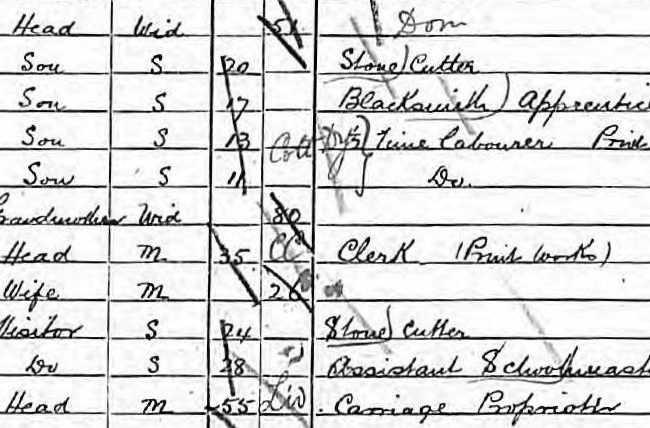 Head Wid 51 Dom
Son S 20 Stone Cutter
Son S 17 Blacksmith Apprentice
Son S 13 Cott ½ Time Labourer Print
Son S 11 Do.
Grandmother Wid 80
Head M 35 CC Clerk (Print Works)
Wife M 26
Visitor S 24 Stone Cutter
Do S 28 Assistant Schoolmast
Head M 55 Liv Carriage Proprietor